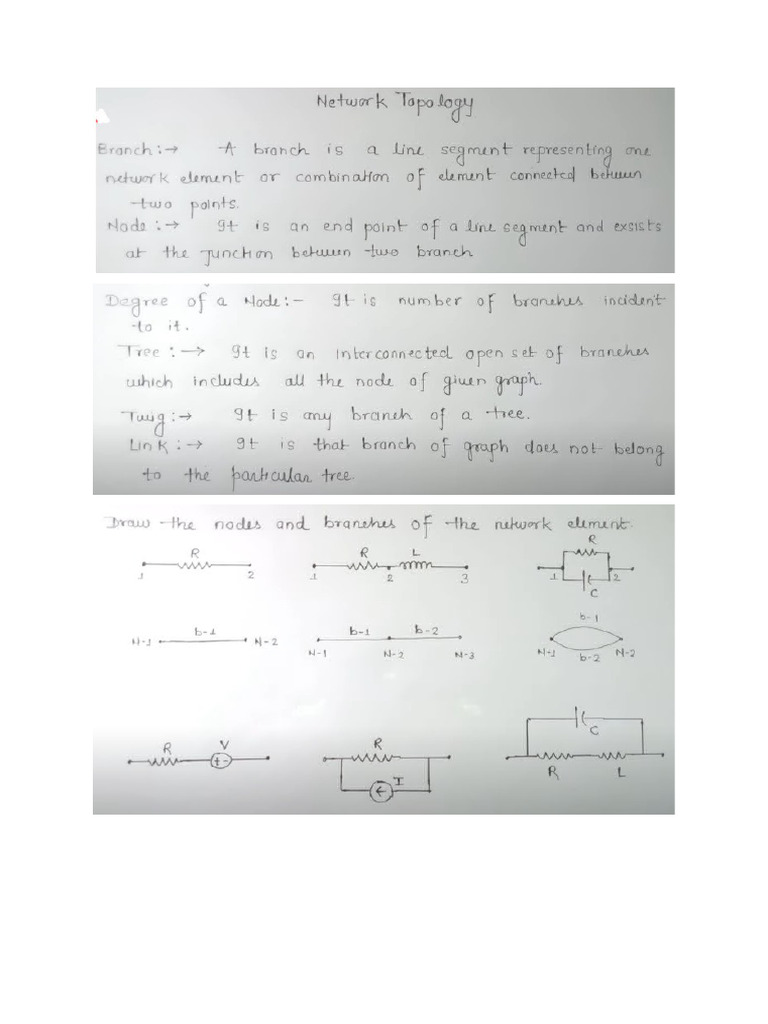 Network Topology
Branch :→ A branch is a line segment representing one
network element or combination of element connected between
two points.
Node :→ It is an end point of a line segment and exsists
at the junction between two branch
Degree of a Node :- It is number of branches incident
to it.
Tree :→ It is an interconnected open set of branches
which includes all the node of given graph.
Twig :→ It is any branch of a tree.
Link :→ It is that branch of graph does not belong
to the particular tree.
Draw the nodes and branches of the network element.
R R L R
1 2 1 2 3 1 2
C
b-1 b-1 b-2 b-1
N-1 N-2 N-1 N-2 N-3 N-1 b-2 N-2
R V R C
+ - I R L